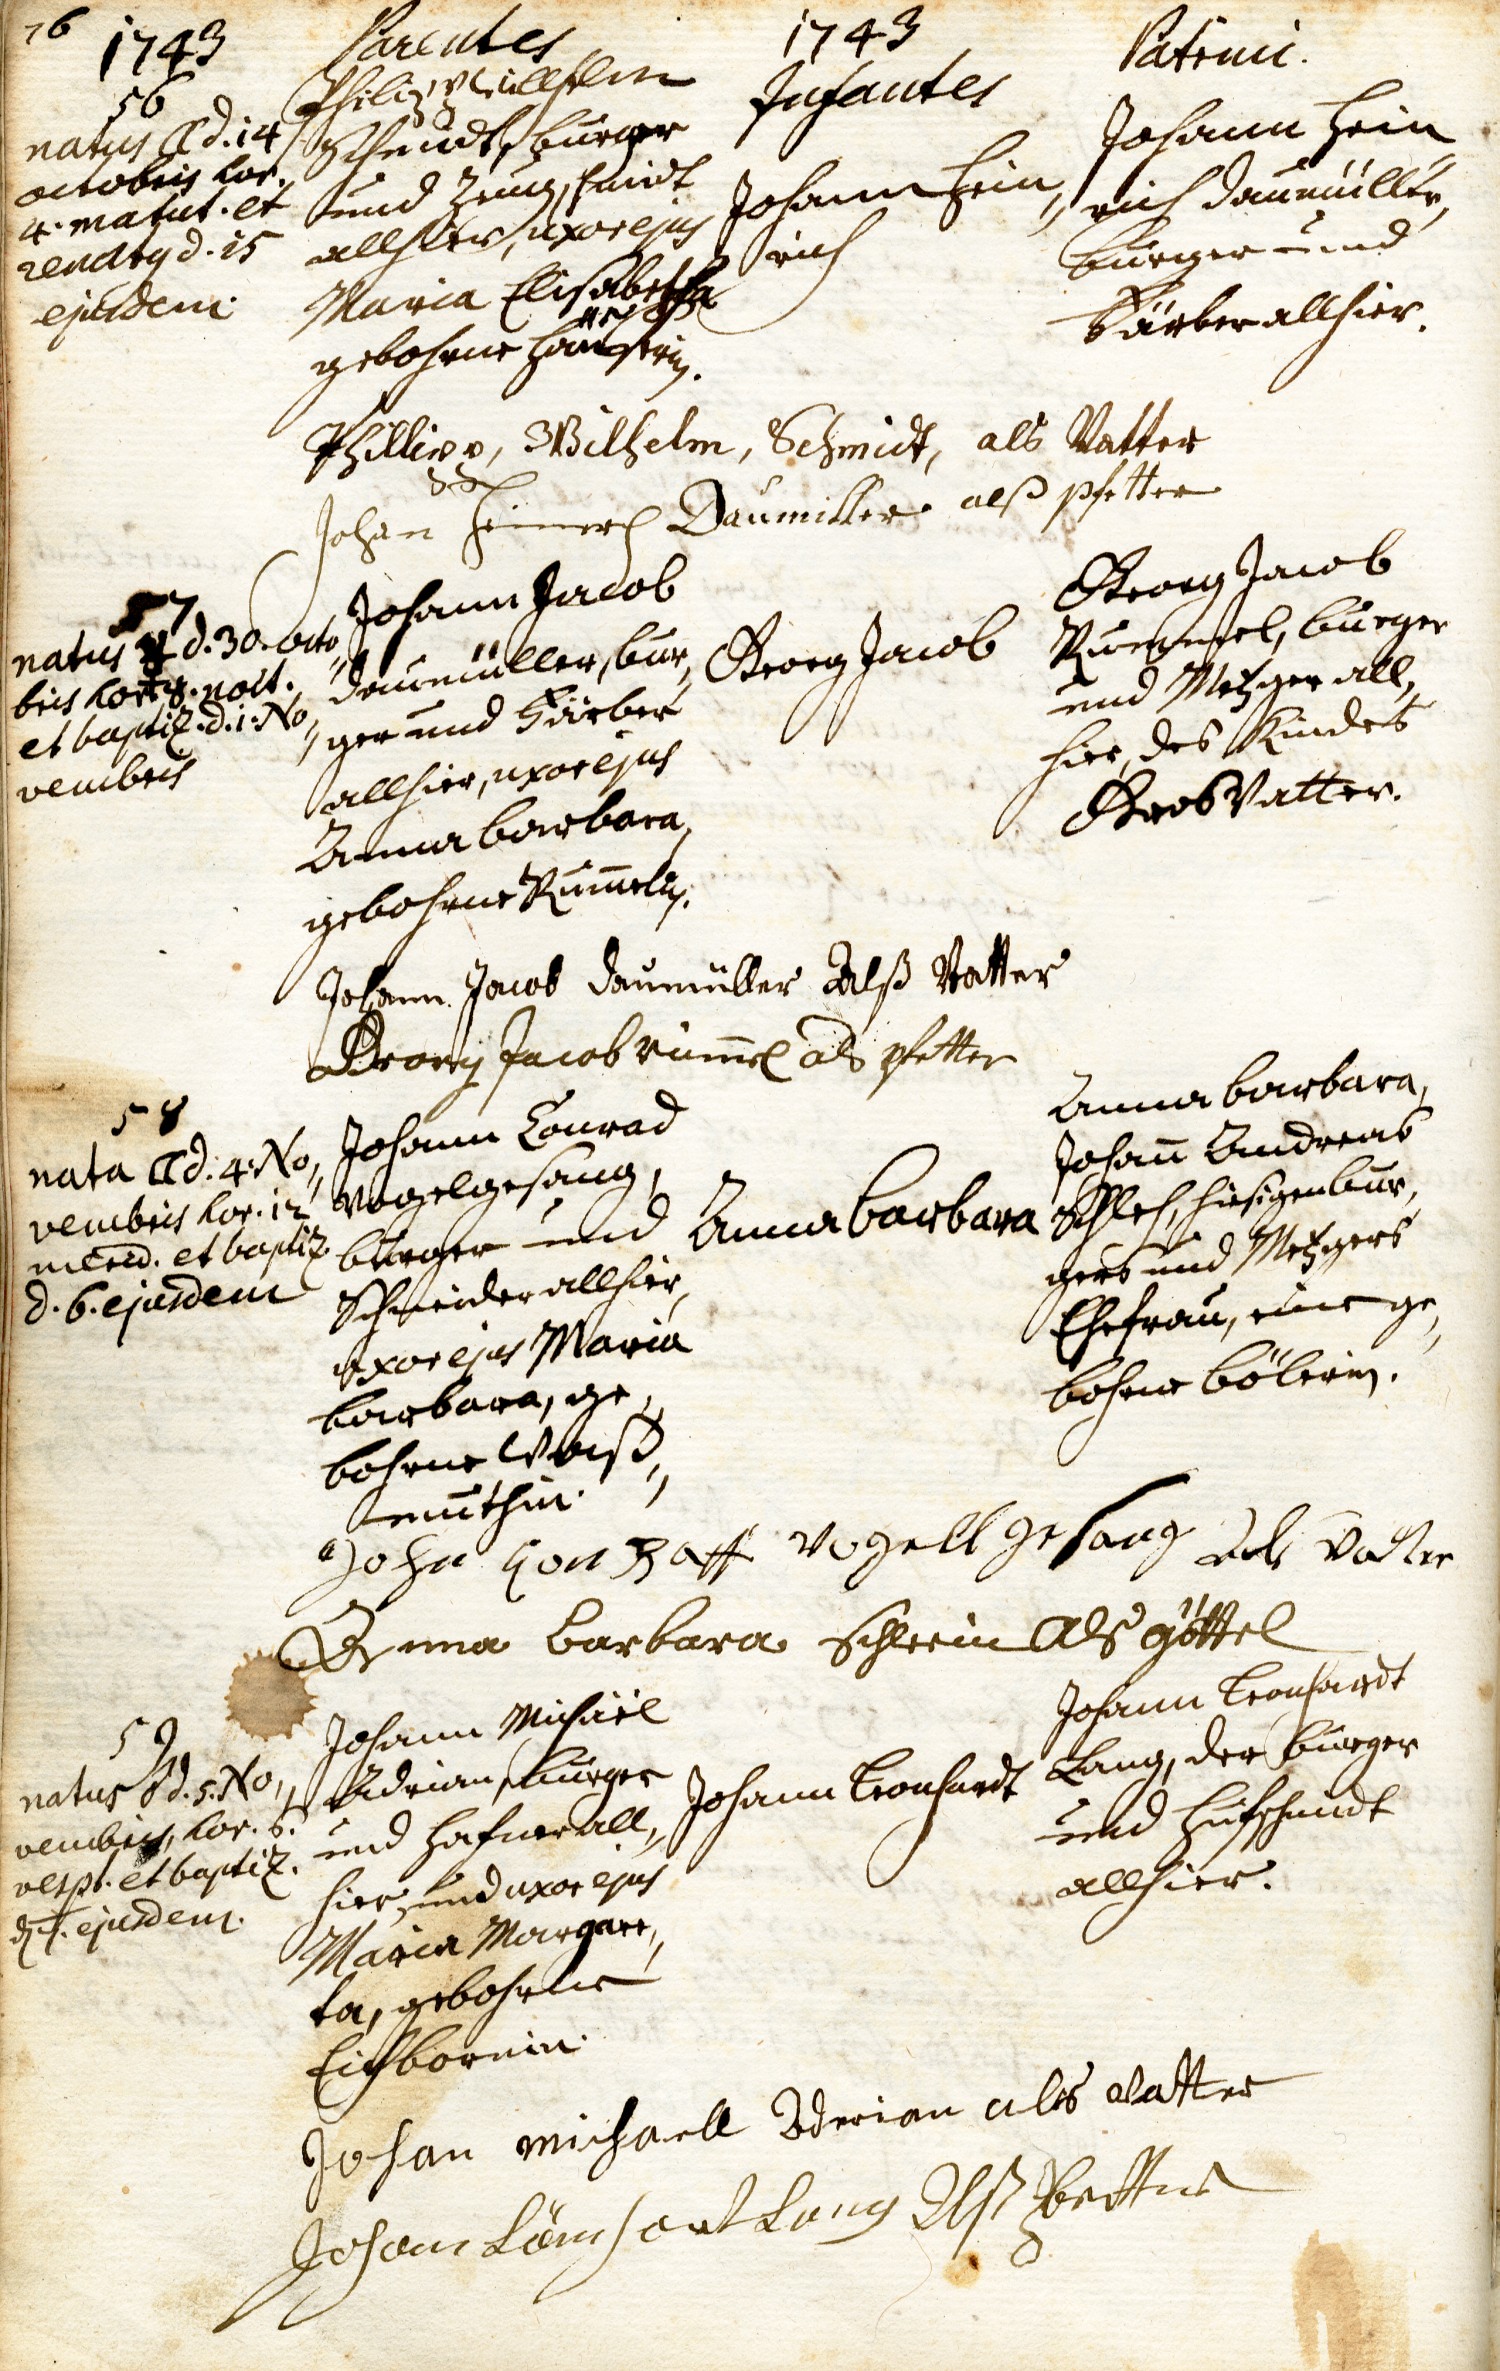 76
1743
Parentes
1743
Infantes
Patrini.
56
natus ☾ d. 14
octobris hor.
4. matut. et
renatus d. 15
ejusdem.
Philipp Willhelm
Schmidt, burger
und Zeug,schmidt
allhier, uxor ejus
Maria Elisabetha
gebohrne
Johann Hein,,
rich
Johann Hein,,
rich Daumüller,
burger und
Färber allhier.
Phillipp, Wilhelm, Schmidt, als Vatter
Johan Heinerch Daumiller alß pfetter
57
natus d. 30. octo,,
bris hor. 8. noct.
et baptiz. d. 1. No,,
vembris
Johann Jacob
Daumüller, bur,,
ger und Färber
allhier, uxor ejus
Anna barbara,
gebohrne Rum̄elin.
Georg Jacob
Georg Jacob
Rummel, burger
und Metzger all,,
hier, des Kindes
GrosVatter.
Johann Jacob Daumüller Alß Vatter
Georg Jacob rum̄el als pfetter
58
nata ☾ d. 4. No,,
vembris hor. 12
merid. et baptiz.
d. 6. ejusdem
Johann Conrad
Vogelgesang,
burger und
Schneider allhier,
uxor ejus Maria
barbara, ge,,
bohrne Weiß,,
muthin.
Anna barbara
Anna barbara,
Johan̄ Andreas
Schleh, hiesigen bur,,
gers und Metzgers
Ehefrau, eine ge,,
bohrne bölerin.
Johan Conratt Vogellgesang als Vatter
Anna barbara Schleein als göttel
59
natus ♂ d. 5. No,,
vembris, hor. 8.
vesp. et baptiz.
ejusdem.
Johann Michäel
Adrian, burger
und Hafner all,,
hier, und uxor ejus
Maria Margare,,
ta, gebohrne
Eichbornin.
Johann Leonhardt
Johann Leonhardt
Lang, der burger
und Hufschmidt
allhier.
Johan michaell Aderian als Vatter
Johan Lönhart Lang Alß Pfetter